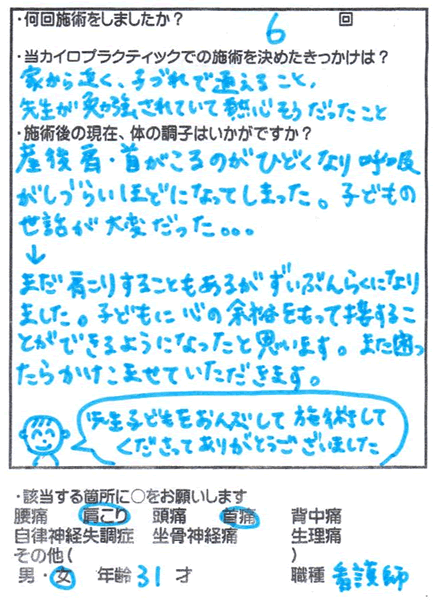 ・何回施術をしましたか？ 6 回
・当カイロプラクティックでの施術を決めたきっかけは？
家から近く、子づれで通えること、
先生が勉強されていて熱心そうだったこと
・施術後の現在、体の調子はいかがですか？
産後肩・首がこるのがひどくなり呼吸
がしづらいほどになってしまった。子どもの
世話が大変だった。。。
↓
まだ肩こりすることもあるがずいぶんらくになり
ました。子どもに心の余裕をもって接するこ
とができるようになったと思います。また困っ
たらかけこませていただきます。
先生子どもをおんぶして施術して
くださってありがとうございました
・該当する箇所に○をお願いします
腰痛 肩こり 頭痛 首痛 背中痛
自律神経失調症 坐骨神経痛 生理痛
その他( )
男・女 年齢 31 才 職種 看護師